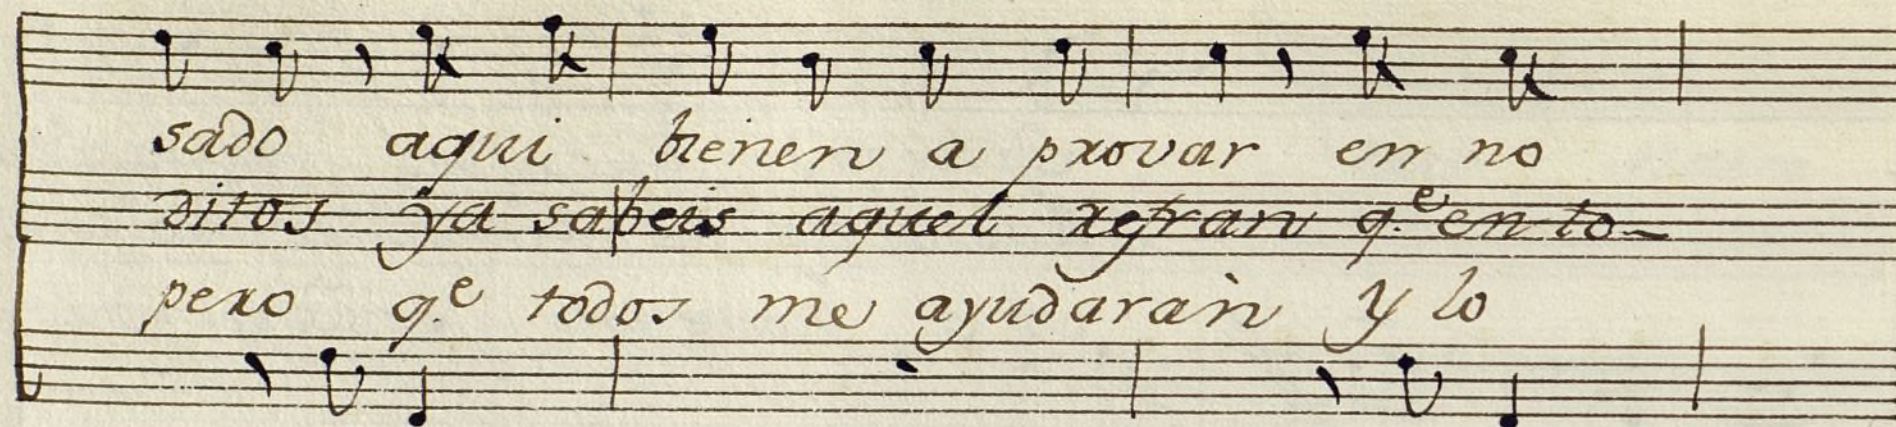 sado aqui bienen a provar en no
ditos ya sabeis aquel refran q.e en to-
pero q.e todos me ayudaràn y lo